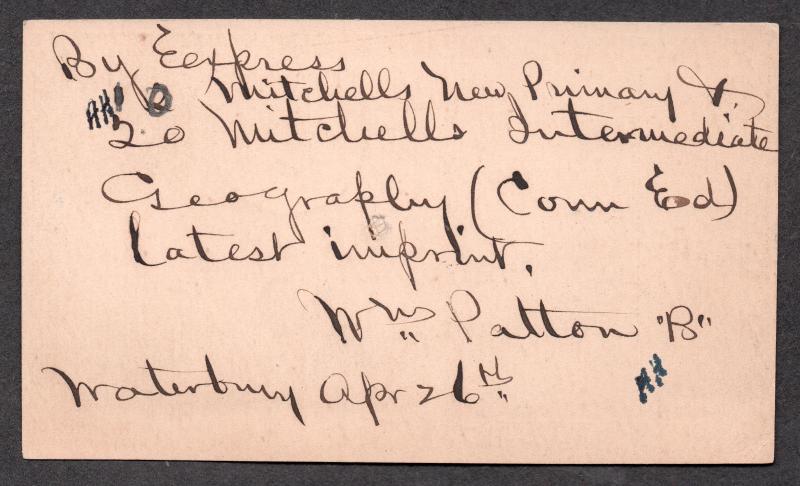 By Express
Mitchells New Primary &
20 Mitchells Intermediate
Geography (Conn Ed)
latest imprint.
Wm Patton "B"
Waterbury Apr 26th